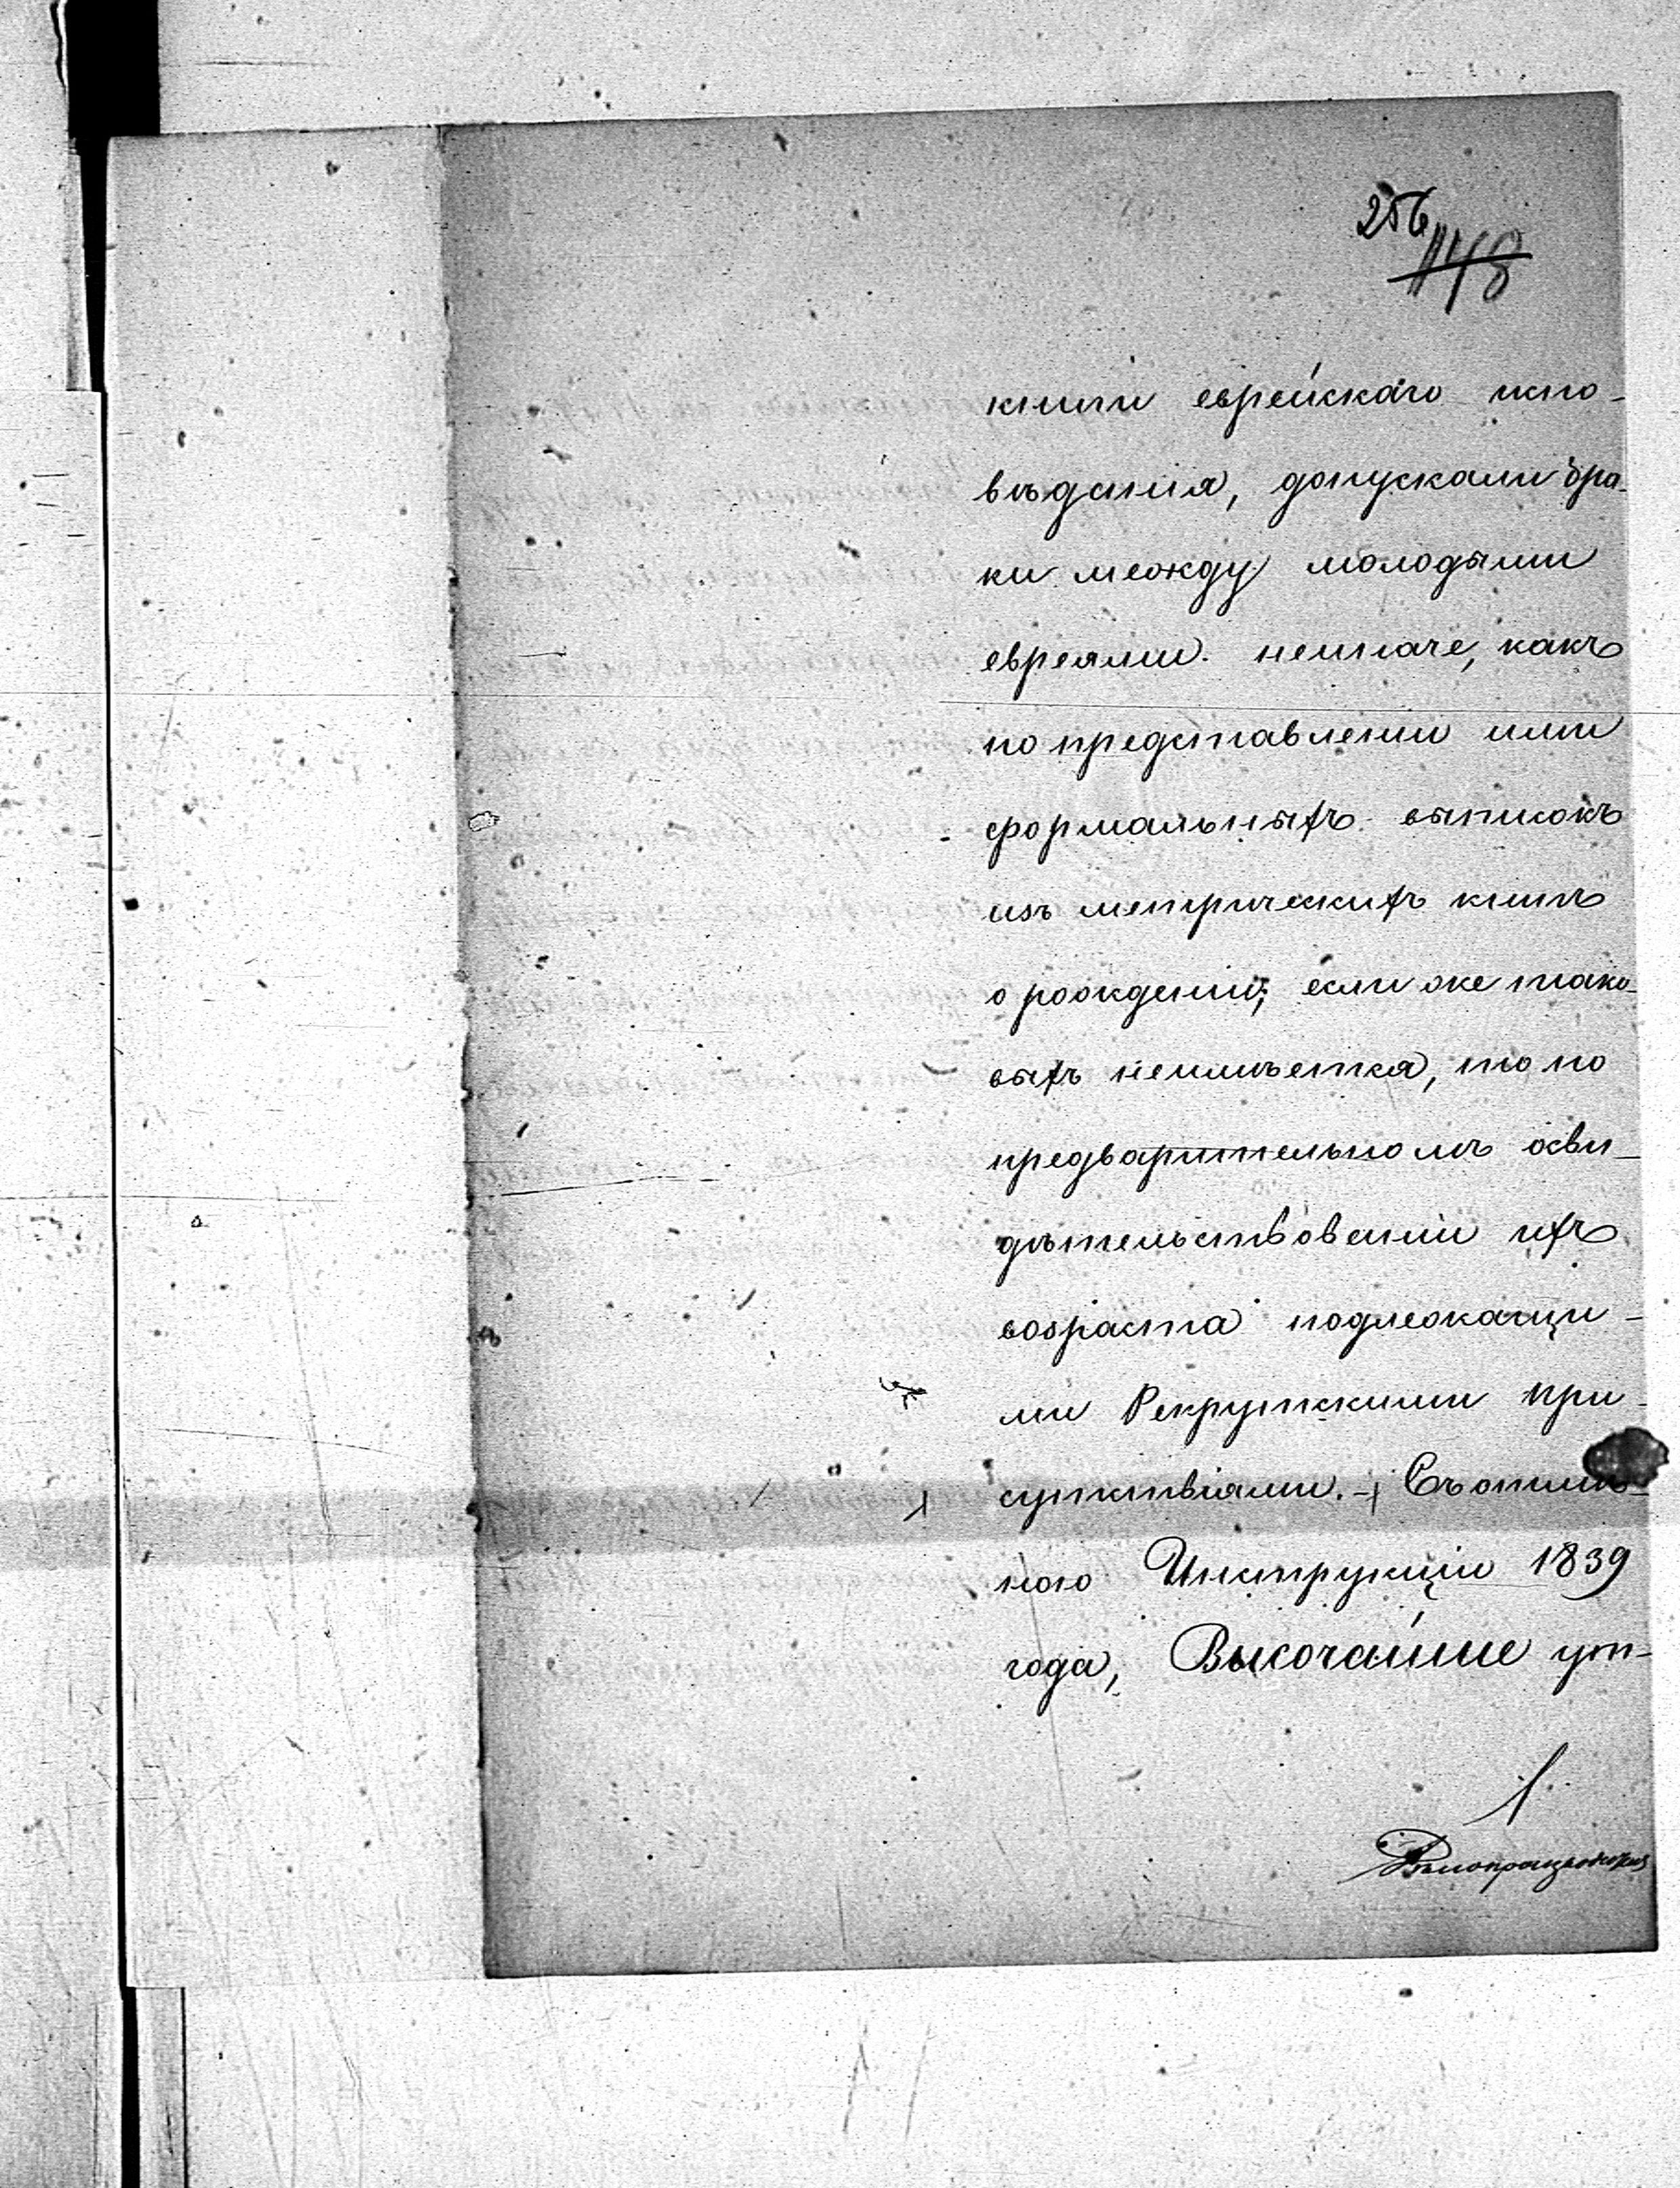 256
118
книги еврейскаго испо-
вѣданія, допускали бра-
ки между молодыми
евреями неиначе, какъ
по представленіи ими
формальныхъ выписокъ
изъ метрическихъ книгъ
о рожденіи; если же тако-
выхъ неимѣется, то по
предварительномъ осви-
дѣтельствованіи ихъ
возраста подлежащи-
ми Рекрутскими При-
сутствіями. Съотмѣ-
ною Инструкціи 1839
года, Высочайше ут-
Дѣлопроизводитель